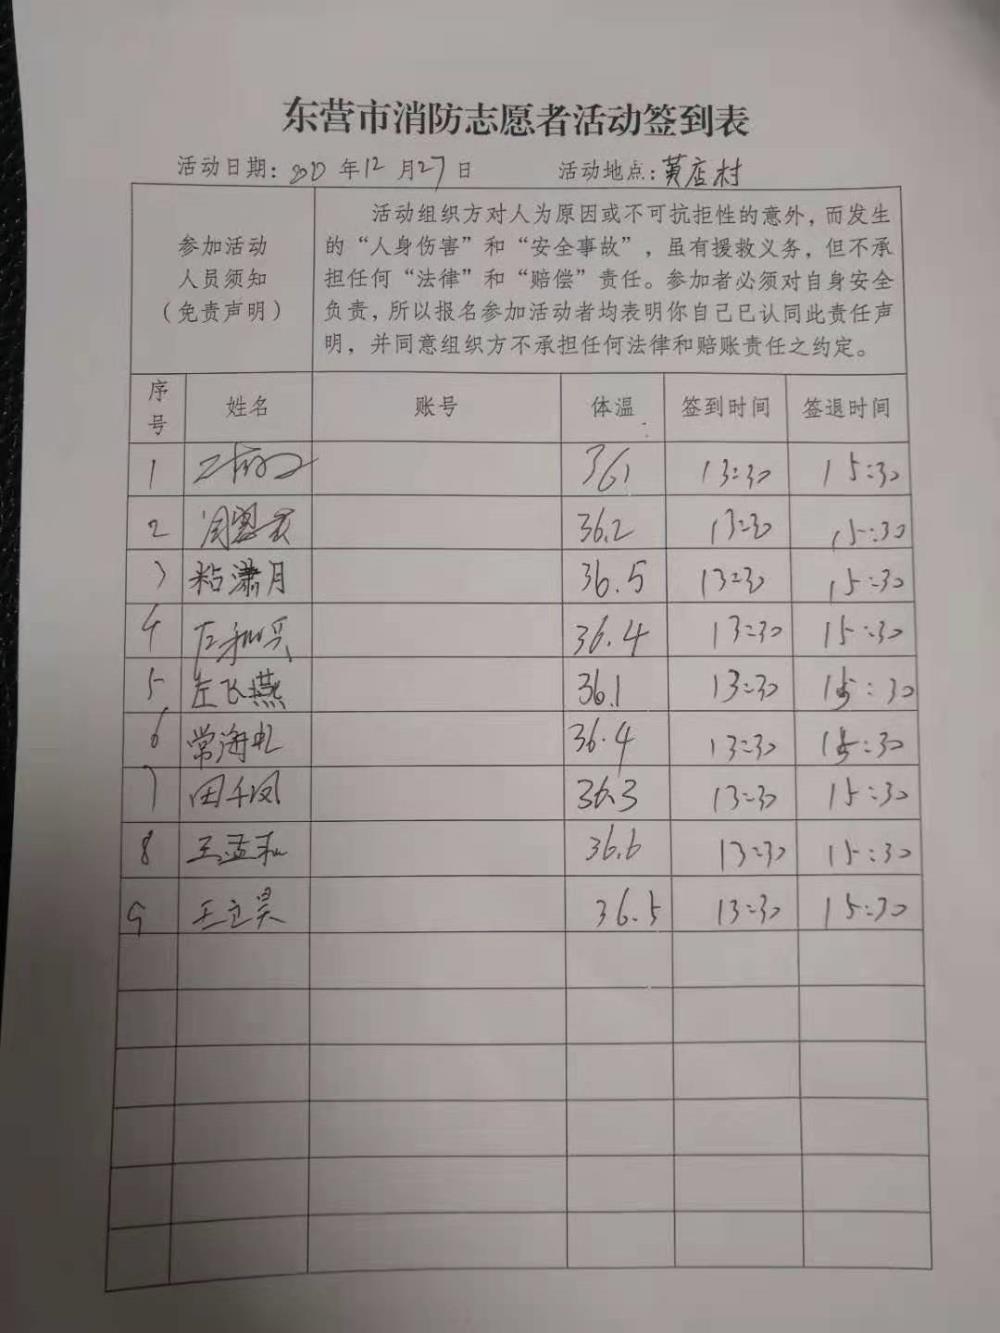 东营市消防志愿者活动签到表
活动日期: 2020 年 12 月 27 日 活动地点: 黄店村
参加活动
人员须知
(免责声明)
活动组织方对人为原因或不可抗拒性的意外，而发生
的“人身伤害”和“安全事故”，虽有援救义务，但不承
担任何“法律”和“赔偿”责任。参加者必须对自身安全
负责，所以报名参加活动者均表明你自己已认同此责任声
明，并同意组织方不承担任何法律和赔账责任之约定。
序号 姓名 账号 体温 签到时间 签退时间
1 36.1 13:30 15:30
2 36.2 13:30 15:30
3 粘潇月 36.5 13:30 15:30
4 36.4 13:30 15:30
5 左飞燕 36.1 13:30 15:30
6 常海 36.4 13:30 15:30
7 田千凤 36.3 13:30 15:30
8 王孟和 36.6 13:30 15:30
9 王立昊 36.5 13:30 15:30